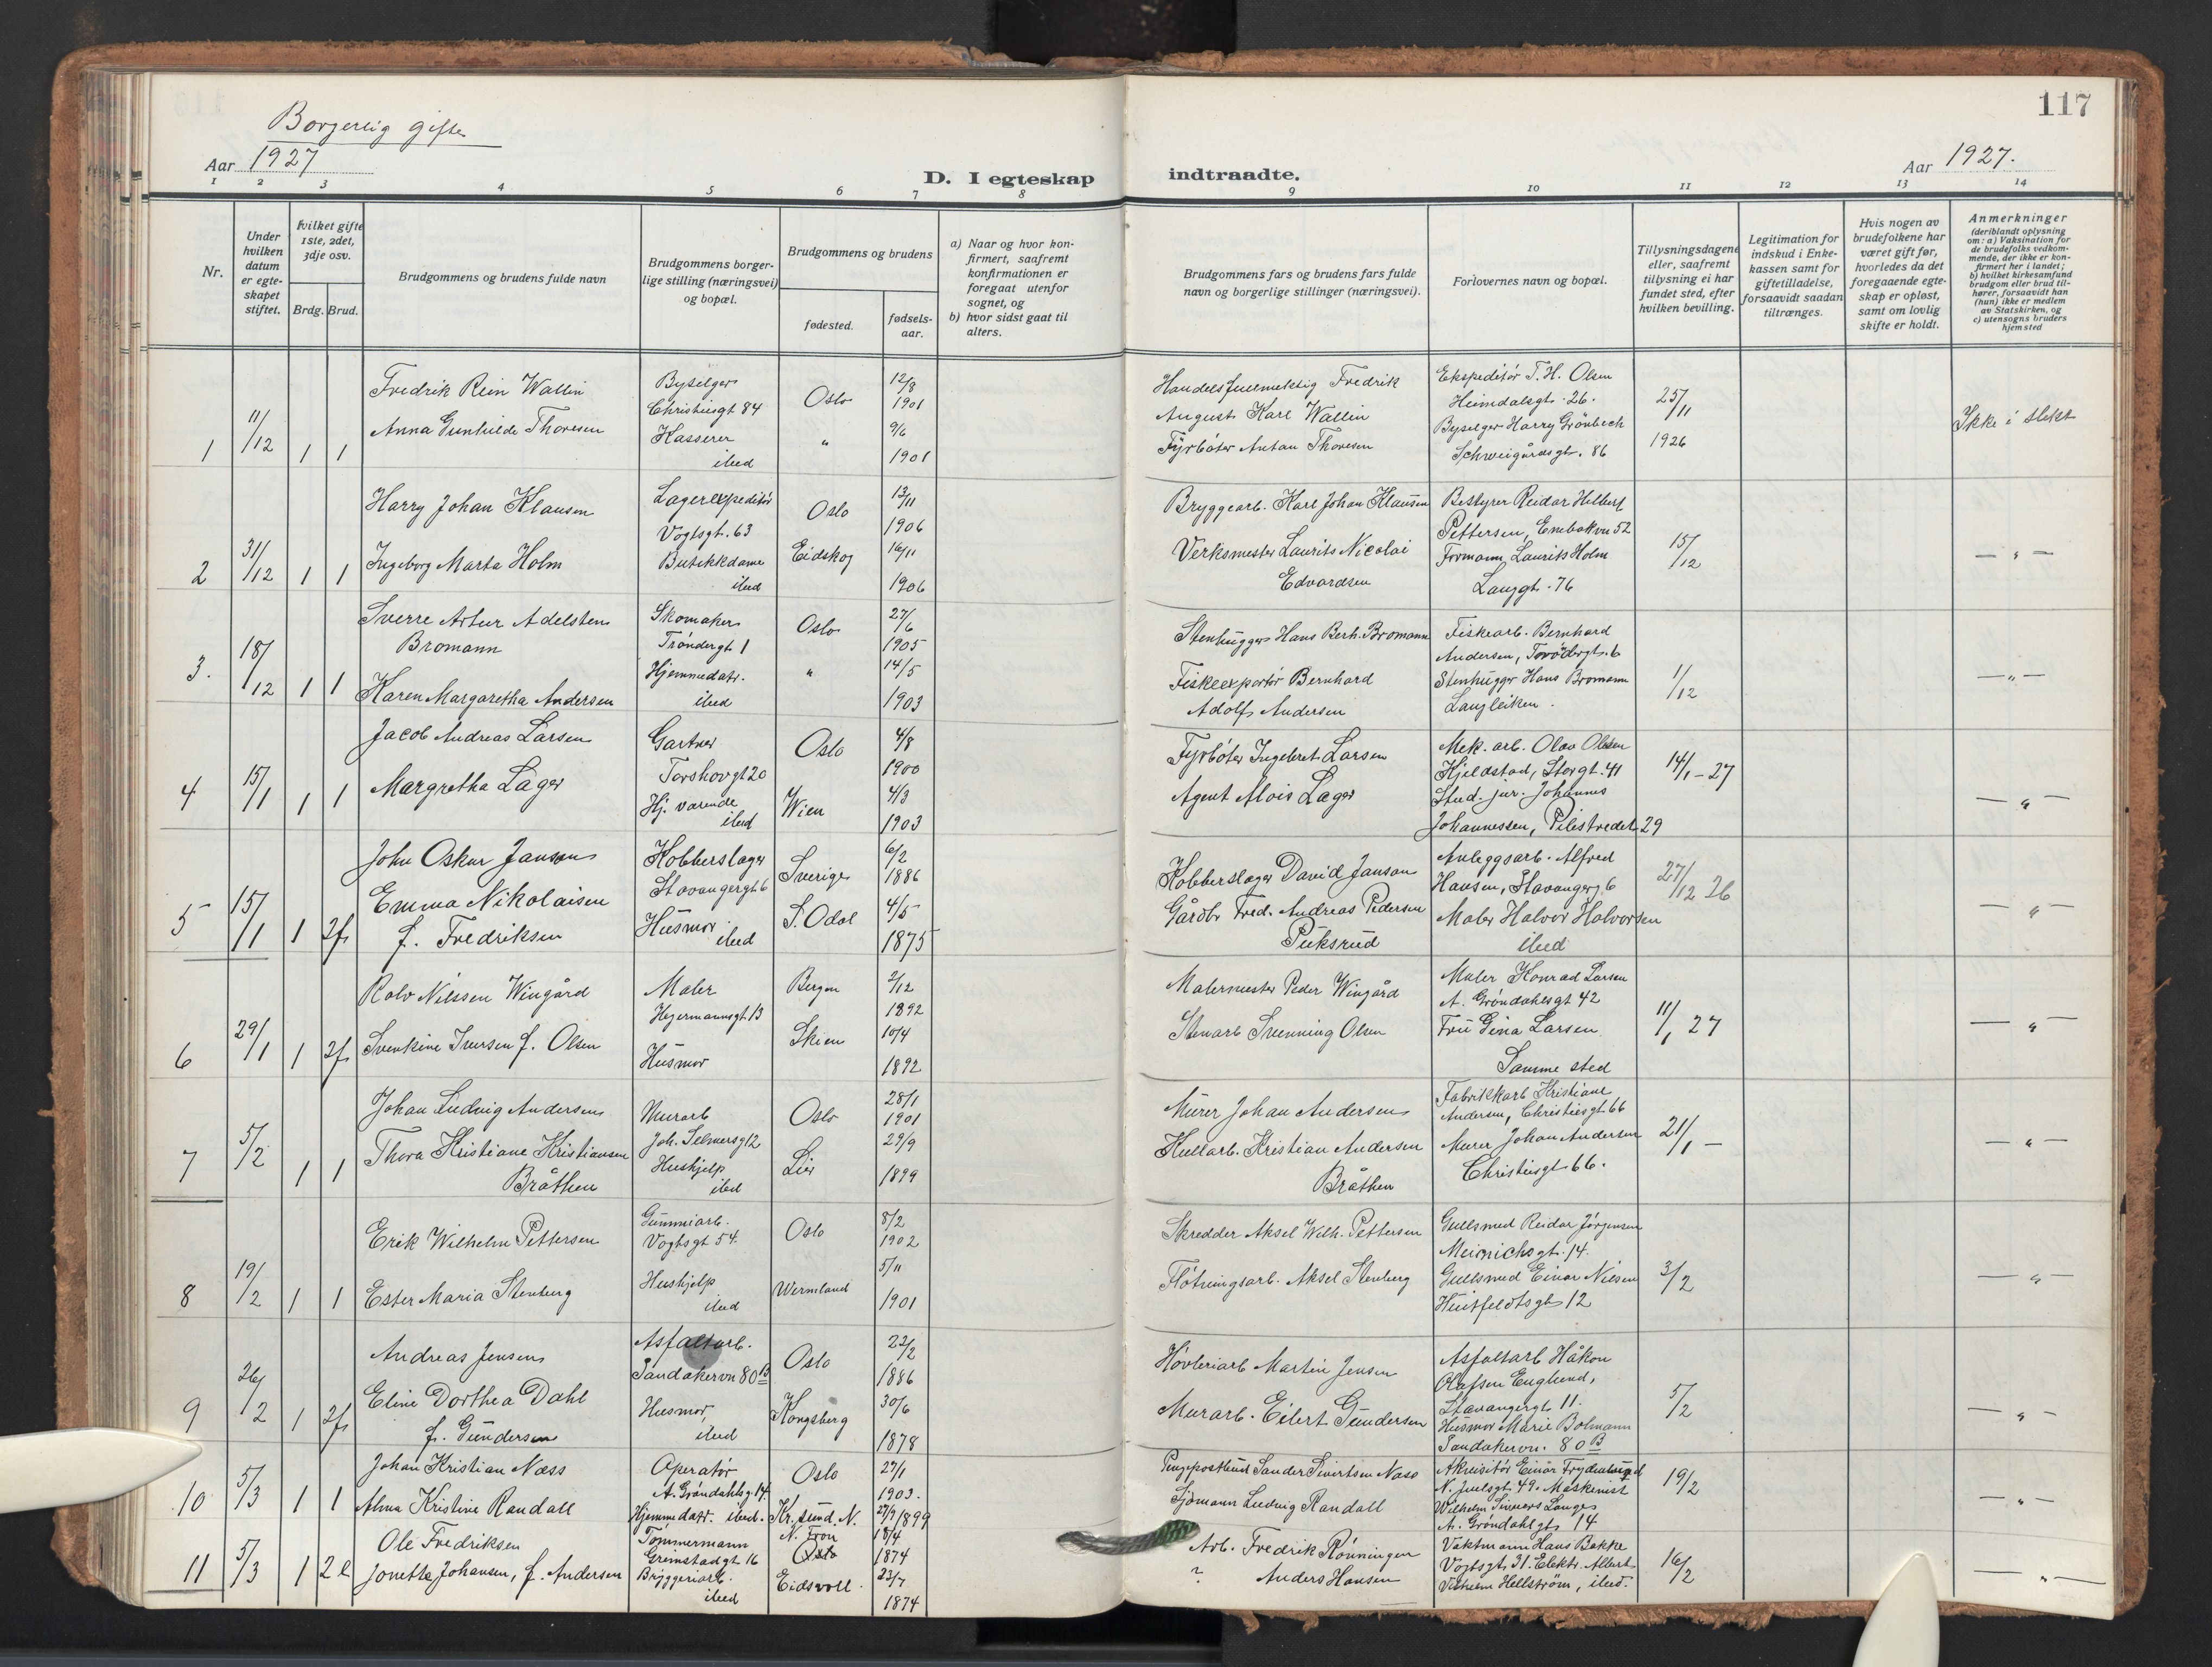 117
Borgerlig gifte
Aar 1927
D. I egteskap indtraadte.
Aar 1927.
1 2 3 4 5 6 7 8 9 10 11 12 13 14
Nr.
Under hvilken datum er egte-skapet stiftet.
hvilket gifte 1ste, 2det, 3dje osv.
Brdg. Brud.
Brudgommens og brudens fulde navn
Brudgommens borger-lige stilling (næringsvei) og bopæl.
Brudgommens og brudens
fødested.
fødsels-aar.
a) Naar og hvor kon-firmert, saafremt konfirmationen er foregaat utenfor sognet, og
b) hvor sidst gaat til alters.
Brudgommens fars og brudens fars fulde navn og borgerlige stillinger (næringsvei).
Forlovernes navn og bopæl.
Tillysningsdagene eller, saafremt tillysning ei har fundet sted, efter hvilken bevilling.
Legitimation for indskud i Enke-kassen samt for giftetilladelse, forsaavidt saadan tiltrænges.
Hvis nogen av brudefolkene har været gift før, hvorledes da det foregaaende egte-skap er opløst, samt om lovlig skifte er holdt.
Anmerkninger (deriblandt oplysning om: a) Vaksination for de brudefolks vedkom-mende, der ikke er kon-firmert her i landet; b) hvilket kirkesamfund brudgom eller brud til-hører, forsaavidt han (hun) ikke er medlem av Statskirken, og c) utensogns bruders hjemsted
1 11/12 1 1
Fredrik Rein Wallin
Anna Gunhilde Thoresen
Byselger
Christiesgt 84
Kasserer
ibid
Oslo
"
12/8 1901
9/6 1901
Handelsfullmektig Fredrik
August Karl Wallin
Fyrböter Anton Thoresen
Ekspeditör T. H. Olsen
Heimdalsgt. 26.
Byselger Harry Grönbech
Schweigårdsgt. 86
25/11 1926
Ikke i slekt
2 31/12 1 1
Harry Johan Klausen
Ingeborg Marta Holm
Lagerexpeditör
Vogtsgt. 63
Butikkdame
ibid
Oslo
Eidskog
13/11 1906
16/11 1906
Bryggearb. Karl Johan Klausen
Verksmester Laurits Nicolai
Edvardsen
Bestyrer Reidar Hilbert
Pettersen, Enebakkvn 52
Formann Laurits Holm
Langgt. 76
15/12
— " —
3. 18/12 1 1
Sverre Artur Adelsten
Bromann
Karen Margaretha Andersen
Skomaker
Tröndergt 1
Hjemmedatr.
ibid
Oslo
"
27/6 1905
14/5 1903
Stenhugger Hans Berh. Bromann
Fiskeexportör Bernhard
Adolf Andersen
Fiskearb. Bernhard
Andersen, Tröndergt. 6
Stenhugger Hans Bromann
Langleiken.
11/12
— " —
4 15/1 1 1
Jacob Andreas Larsen
Margretha Lager
Gartner
Torshovgt 20
Hj. værende
ibid
Oslo
Wien
4/8 1900
4/3 1903
Fyrböter Ingebret Larsen
Agent Alois Lager
Mek. arb. Olav Olsen
Kjeldstad, Storgt. 41
Stud. jur. Johannes
Johannessen, Pilestredet 29
14/1 - 27
— " —
5 15/1 1 2f
John Oskar Janson
Emma Nikolaisen
f. Fredriksen
Kobberslager
Stavangergt 6
Husmor
ibid
Sverige
S. Odal
6/2 1886
4/5 1875
Kobberslager David Janson
Gårdbr Fred. Andreas Pedersen
Puksrud
Anleggsarb. Alfred
Hansen, Stavangerg. 6
Maler Halvor Halvorsen
ibid
27/12 26
— " —
6 29/1 1 2f
Rolv Nilssen Wingård
Svenkine Iversen f. Olsen
Maler
Hegermannsgt 13
Husmor
Bergen
Skien
2/12 1892
10/4 1892
Malermester Peder Wingård
Stenarb Svenning Olsen
Maler Konrad Larsen
A. Gröndahlsgt 42
Fru Gina Larsen
Samme sted
11/1 27
— " —
7 5/2 1 1
Johan Ludvig Andersen
Thora Kristiane Kristiansen
Bråthen
Murarb
Joh. Selmersg 12
Hushjelp
ibid
Oslo
Lier
28/1 1901
29/9 1899
Murer Johan Andersen
Kullarb. Kristian Andersen
Bråthen
Fabrikkarb Kristiane
Andersen, Christiesgt 66
Murer Johan Andersen
Christiesgt 66.
21/1 —
— " —
8 19/2 1 1
Erik Wilhelm Pettersen
Ester Maria Stenberg
Gummiarb.
Vogtsgt 54.
Hushjelp
ibid
Oslo
Wermland
8/2 1902
5/11 1901
Skredder Aksel Wilh. Pettersen
Flötningsarb. Aksel Stenberg
Gullsmed Reidar Jörgensen
Meinichsgt. 14.
Gullsmed Einar Nilsen
Huitfeldtsgt 12
3/2
— " —
9 26/2 1 2f
Andreas Jensen
Eline Dorthea Dahl
f. Gundersen
Asfaltarb.
Sandakervn 80 B
Husmor,
ibid
Oslo
Kongsberg
22/2 1886
30/6 1878
Hövleriarb Martin Jensen
Murarb. Eilert Gundersen
Asfaltarb Håkon
Olafsen Englund,
Stavangergt 11.
Husmor Marie Bolmann
Sandakervn. 80 B
5/2
— " —
10 5/3 1 1
Johan Kristian Næss
Alma Kristine Randall
Operatör
A. Gröndahlsg. 14.
Hjemmedatr. ibid.
Oslo
Kr.sund. N.
27/1 1903.
27/9 1899
Pengepostbud Sander Sivertsen Næss
Sjömann Ludvig Randall
Akvisitör Einar Frydenlund
N. Juelsgt. 49. Maskinist
Wilhelm Sivers Lange
A. Gröndahlgt 14
19/2
— " —
11 5/3 1 2e
Ole Fredriksen
Jonette Johansen, f. Andersen
Tömmermann
Grimstadgt 16
Bryggeriarb.
ibid
N. Fron
Oslo
Eidsvoll.
18/4 1874
23/7 1874
Arb. Fredrik Rönningen
? Anders Hansen
Vaktmann Hans Bakke
Vogtsgt. 31. Elektr. Albert
Vilhelm Hellström, ibid.
16/2
— " —